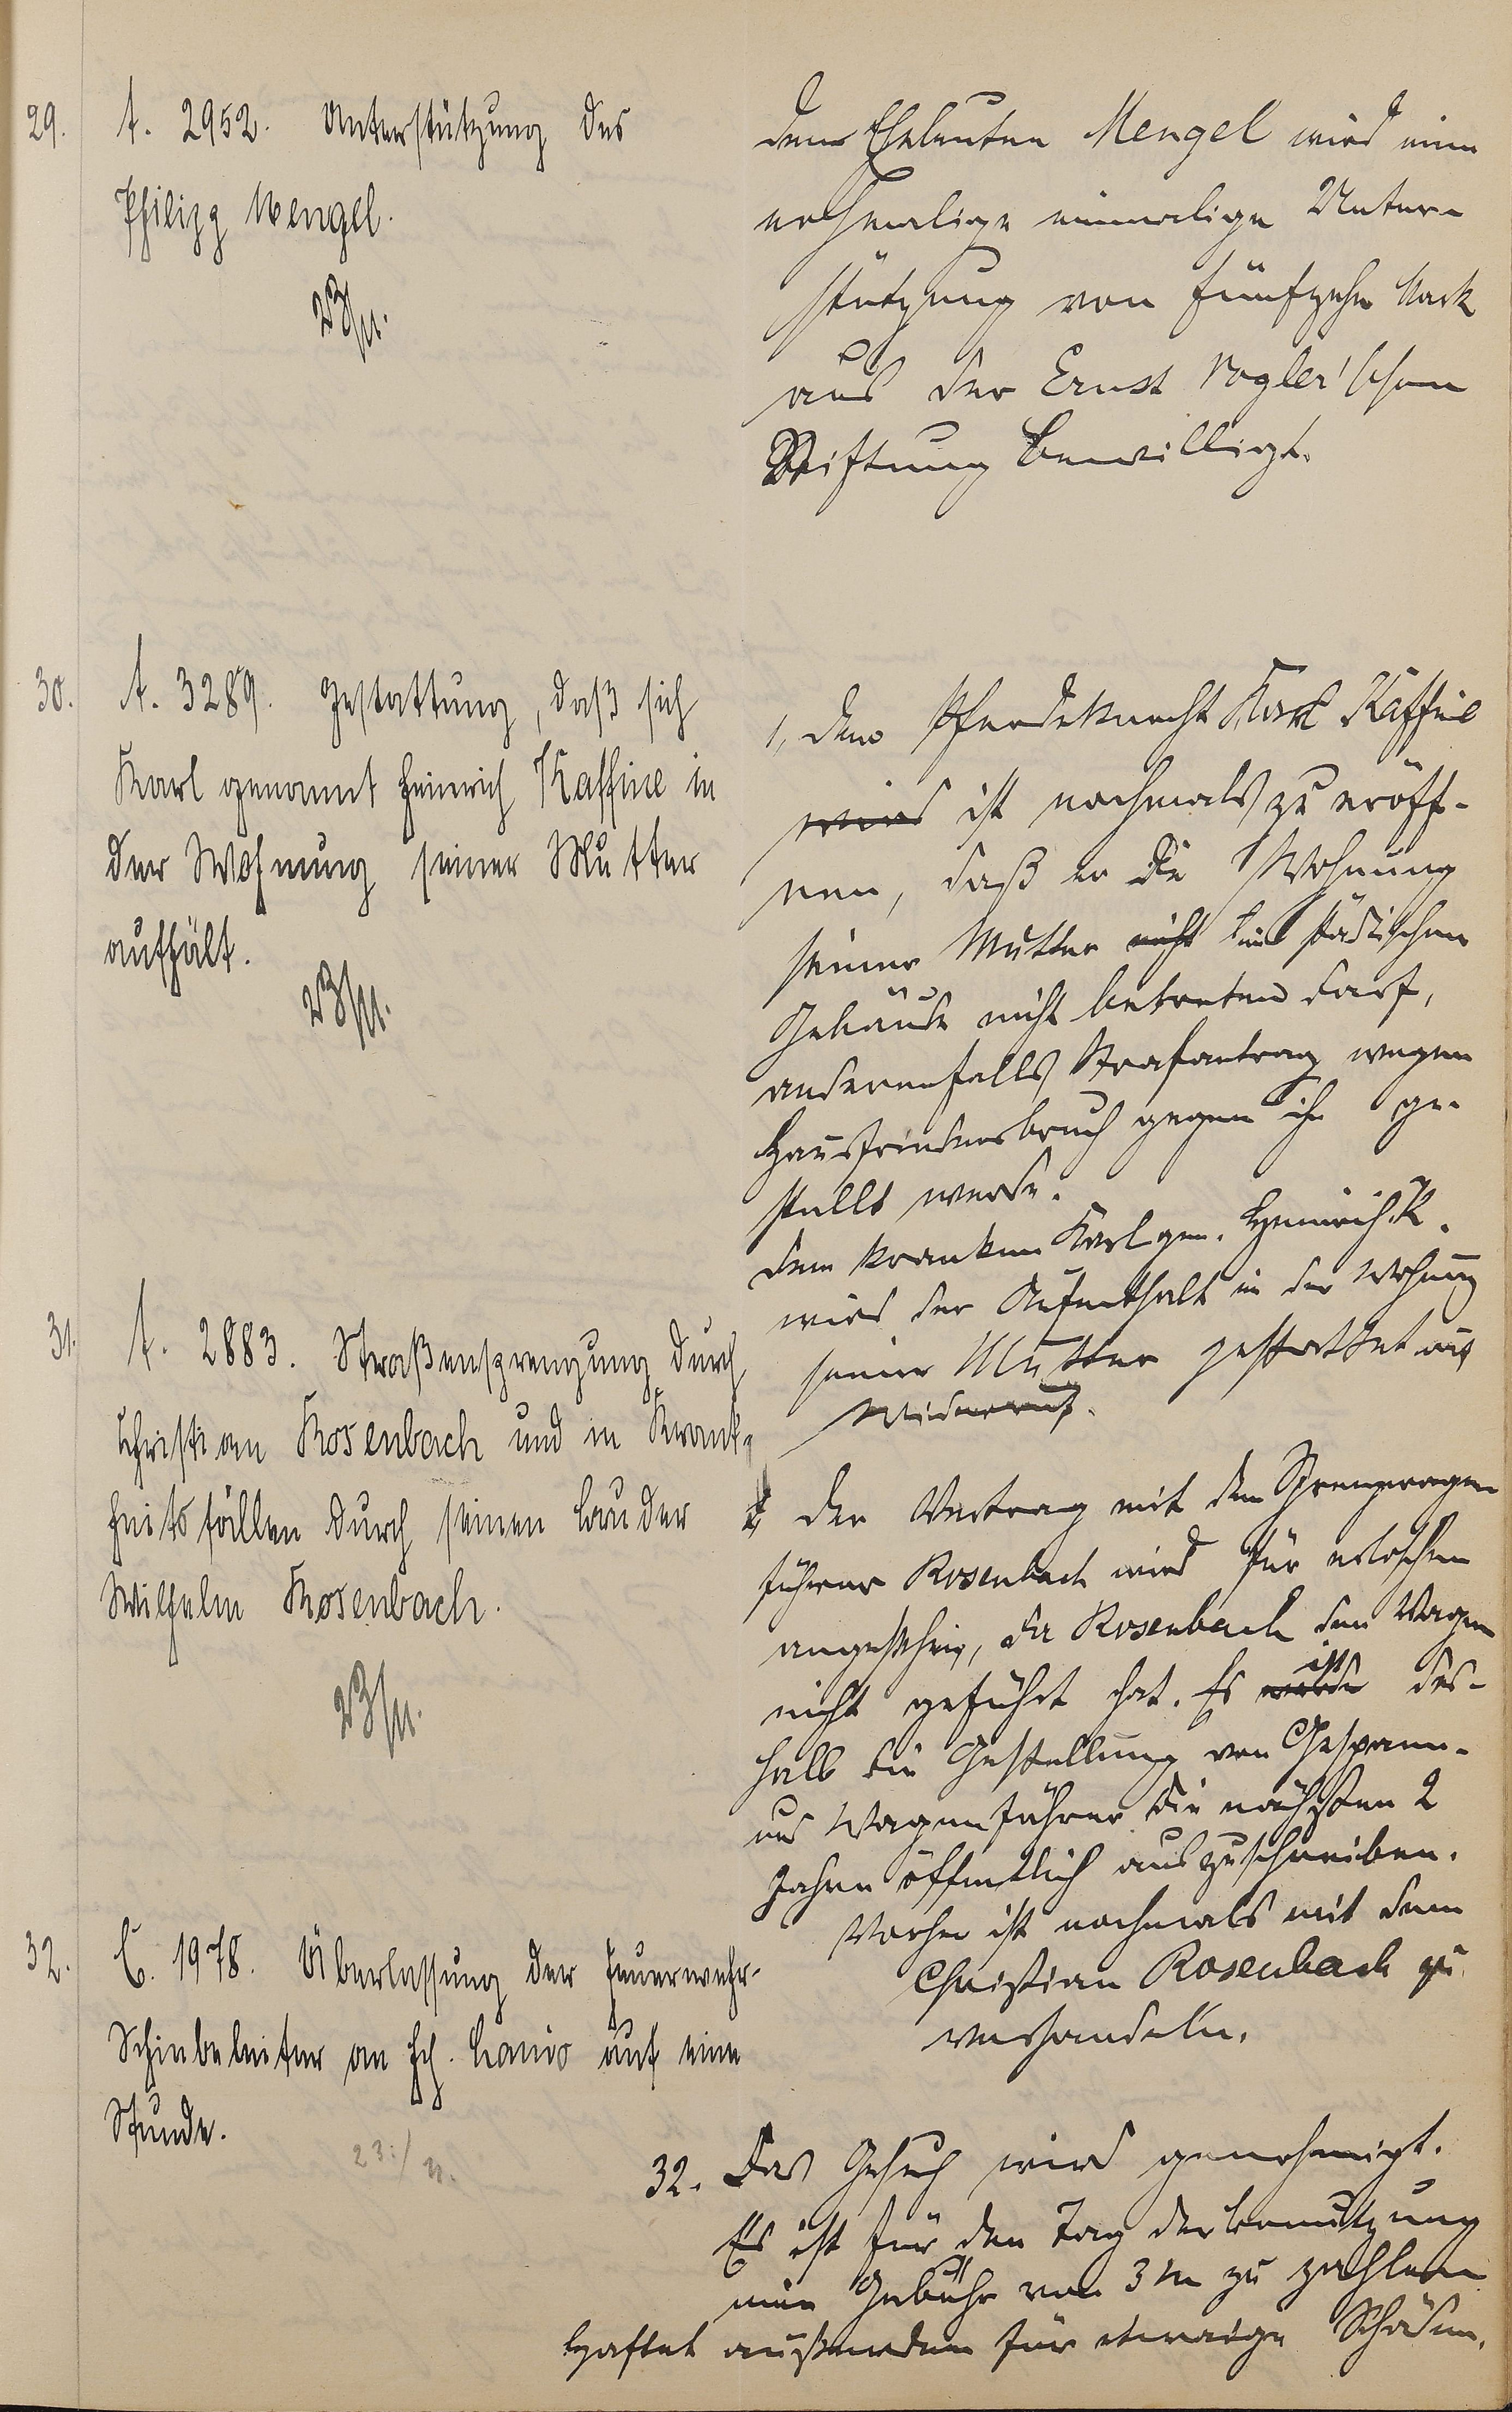 29. A. 2952. Unterstützung des
Philipp Mengel.
23/11.
Den Eheleuten Mengel wird eine
nochmalige einmalige Unter-
stützung von fünfzehn Mark
aus der Ernst Vogler'schen
Stiftung bewilligt.
30. A. 3289. Gestattung, daß sich
Karl genannt Heinrich Kaffine in
der Wohnung seiner Mutter
aufhält.
23/11.
1, dem Pferdeknecht Karl Kaffine
wird ist nochmals zu eröff-
nen, daß er die Wohnung
seiner Mutter nicht im städtischen
Gebäude nicht betreten darf,
anderenfalls Strafantrag wegen
Hausfriedensbruch gegen ihn ge-
stellt werde.
dem kranken Karl gen. Heinrich K.
wird der Aufenthalt in der Wohnung
seiner Mutter gestattet auf
Widerruf.
31. A. 2883. Straßensprengung durch
Christian Rosenbach und in Krank-
heitsfällen durch seinen Bruder
Wilhelm Rosenbach.
23/11.
Der Vertrag mit dem Sprengwagen
führer Rosenbach wird für erloschen
angesehen, da Rosenbach den Wagen
nicht geführt hat. Es wurde ist des-
halb die Gestellung von Gespann-
und Wagenführer die nächsten 2
Jahre öffentlich auszuschreiben.
Vorher ist nochmals mit dem
Christian Rosenbach zu
verhandeln.
32. C. 1978. Überlassung der Feuerwehr-
Schiebeleiter an Fch. Lanio auf eine
Stunde.
23./11.
32. Das Gesuch wird genehmigt.
Es ist für den Tag der Benutzung
eine Gebühr von 3 M zu zahlen
haftet außerdem für etwaige Schäden.